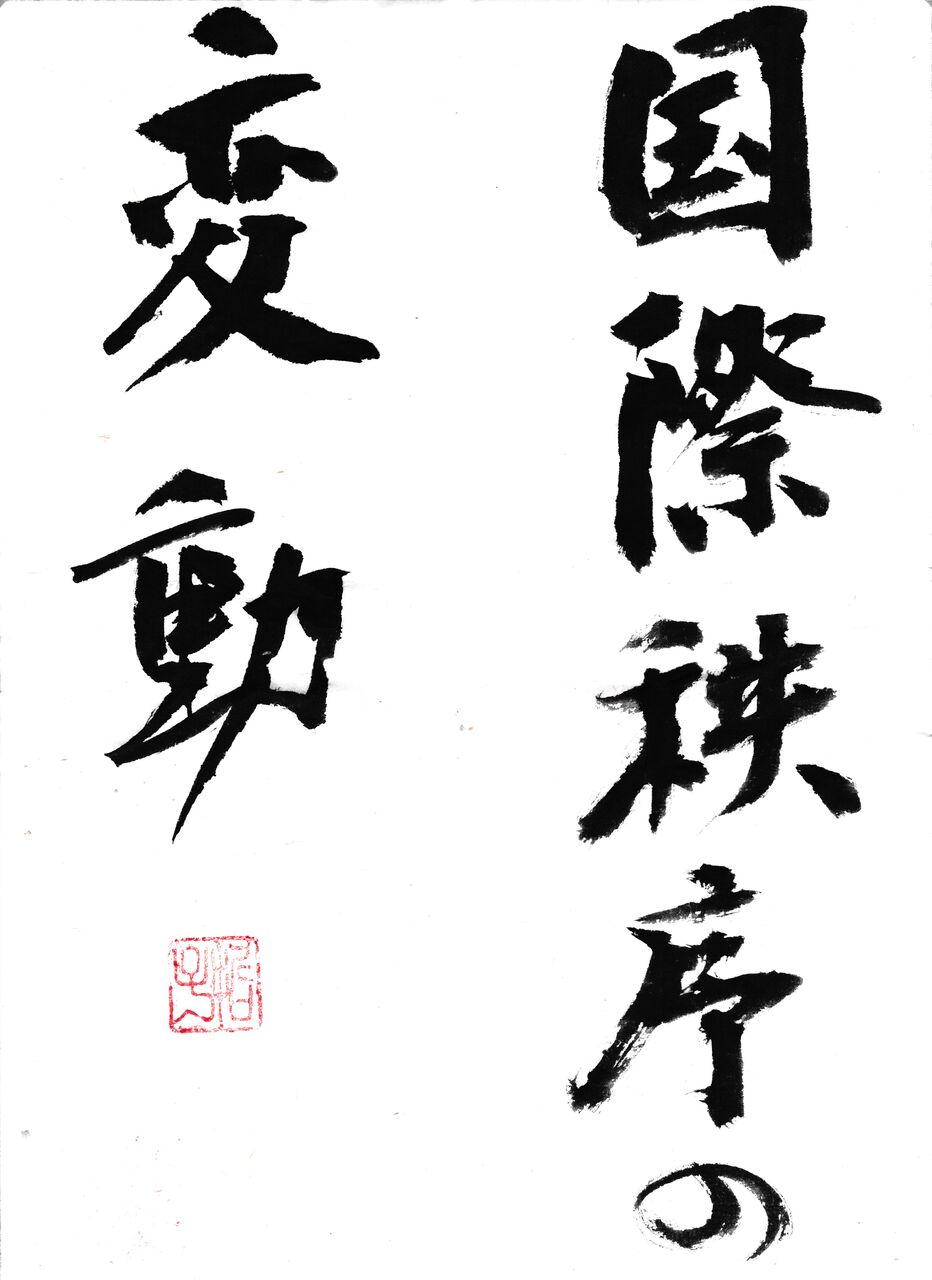 国際秩序の
変動